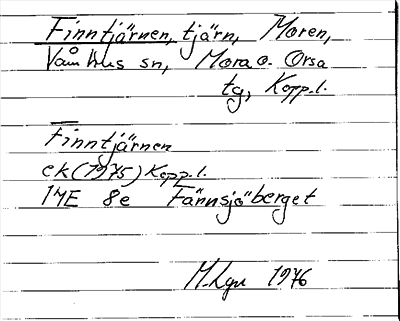 Finntjärnen, tjärn, Moren,
Våmhus sn, Mora o. Orsa
tg, Kopp. l.
Finntjärnen
ek (1975) Kopp. l.
14E 8e Fännsjöberget
1976